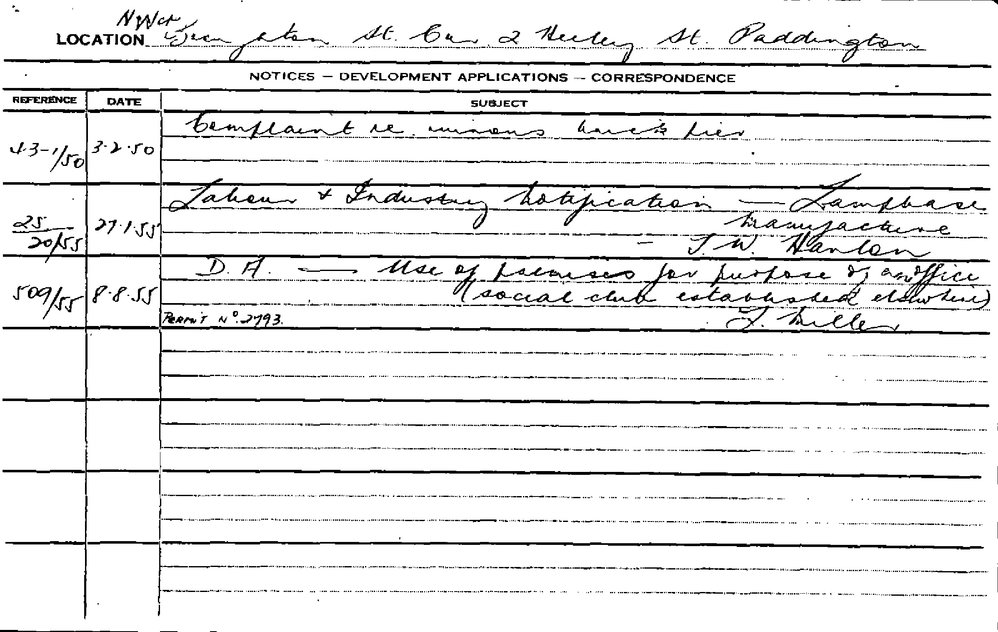 NW Cr
LOCATION St. Cnr 2 Heeley St. Paddington
NOTICES — DEVELOPMENT APPLICATIONS — CORRESPONDENCE
REFERENCE DATE SUBJECT
Complaint re ruinous brick pier
3·2·50
Labour & Industry Notification — Lampbase
25/20/55 27·1·55 manufacture
— T. W. Hanlon
D. A. — Use of premises for purpose of an office
509/55 8·8·55 (social club established elsewhere)
PERMIT Nº. 2793. Miller